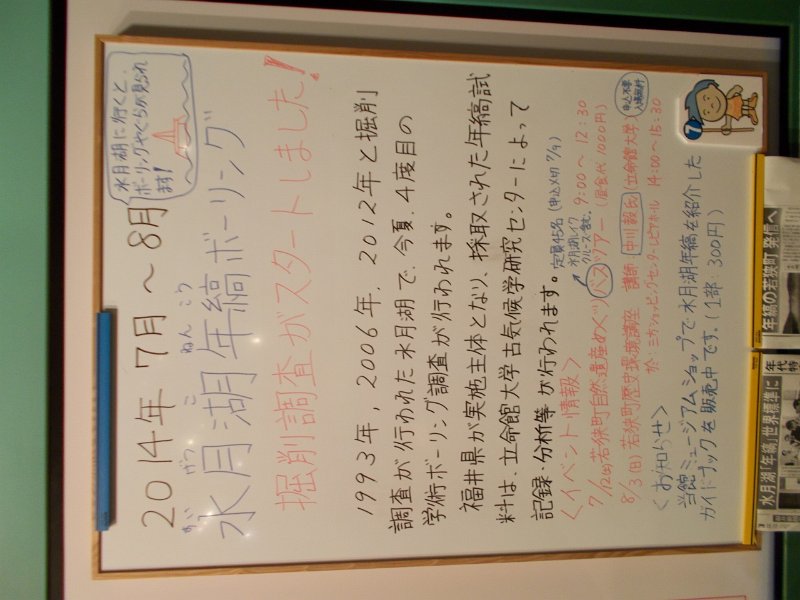 2014年 7月～8月
水月湖に行くと、
ボーリングやぐらが見られ
ます!
すい げつ こ ねん こう
水月湖年縞ボーリング
掘削調査がスタートしました!
1993年, 2006年, 2012年と掘削
調査が行われた水月湖で、今夏、4度目の
学術ボーリング調査が行われます。
福井県が実施主体となり、採取された年縞試
料は、立命館大学古気候学研究センターによって
記録・分析等が行われます。
定員45名(申込〆切 7/9)
水月湖レイク
クルーズ含む。
<イベント情報>
7/12(土)若狭町自然遺産めぐりバスツアー 9:00～12:30
(昼食代1000円)
8/3(日)若狭町歴史環境講座 講師:中川毅氏(立命館大学)
申込不要
入場無料
於:三方ショッピングセンターレピアホール 14:00～15:30
<お知らせ>
当館ミュージアムショップで水月湖年縞を紹介した
ガイドブックを販売中です。(1部:300円)
7
年縞の若狭町 発信へ
水月湖「年縞」世界標準に
年代特